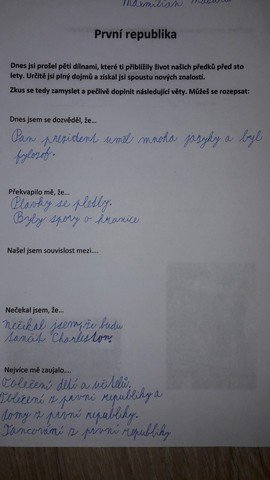 Maximilian
První republika
Dnes jsi prošel pěti dílnami, které ti přiblížily život našich předků před sto
lety. Určitě jsi plný dojmů a získal jsi spoustu nových znalostí.
Zkus se tedy zamyslet a pečlivě doplnit následující věty. Můžeš se rozepsat:
Dnes jsem se dozvěděl, že...
Pan prezident uměl mnoho jazyky a byl
fylozof.
Překvapilo mě, že...
Plavky se pletly.
Byly spory o hranice
Našel jsem souvislost mezi....
Nečekal jsem, že...
nečikal jsem, že budu
tančit Charleston
Nejvíce mě zaujalo....
Oblečení dětí a učitelů.
Oblečení z první republiky a
domy z první republiky.
Tancování z první republiky